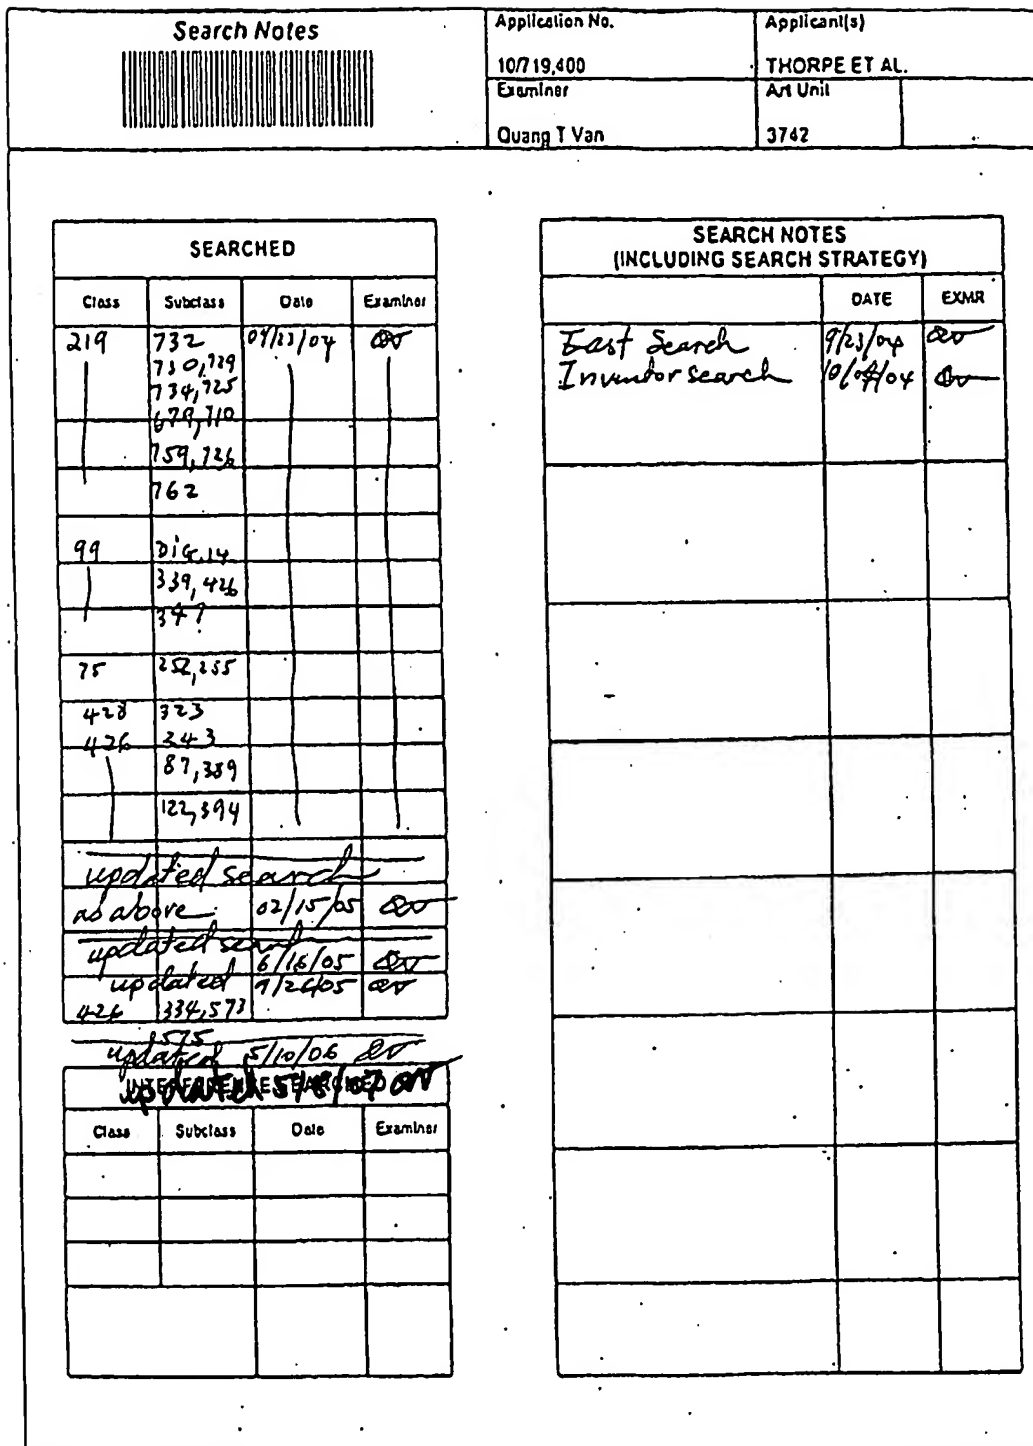 Search Notes
Application No.
10/719,400
Applicant(s)
THORPE ET AL.
Examiner
Quang T Van
Art Unit
3742
SEARCHED
Class Subclass Date Examiner
219 732 09/23/04 QV
730,729
734,725
679,710
759,726
762
99 DIG.14
339,426
347
75 252,255
428 323
426 243
87,389
122,394
updated search
as above 02/15/05 QV
updated search
6/16/05 QV
updated 9/26/05 QV
426 334,573
575
updated 5/10/06 QV
updated QV
INTERFERENCE SEARCHED
Class Subclass Date Examiner
SEARCH NOTES
(INCLUDING SEARCH STRATEGY)
DATE EXMR
East Search 9/23/04 QV
Inventor search QV